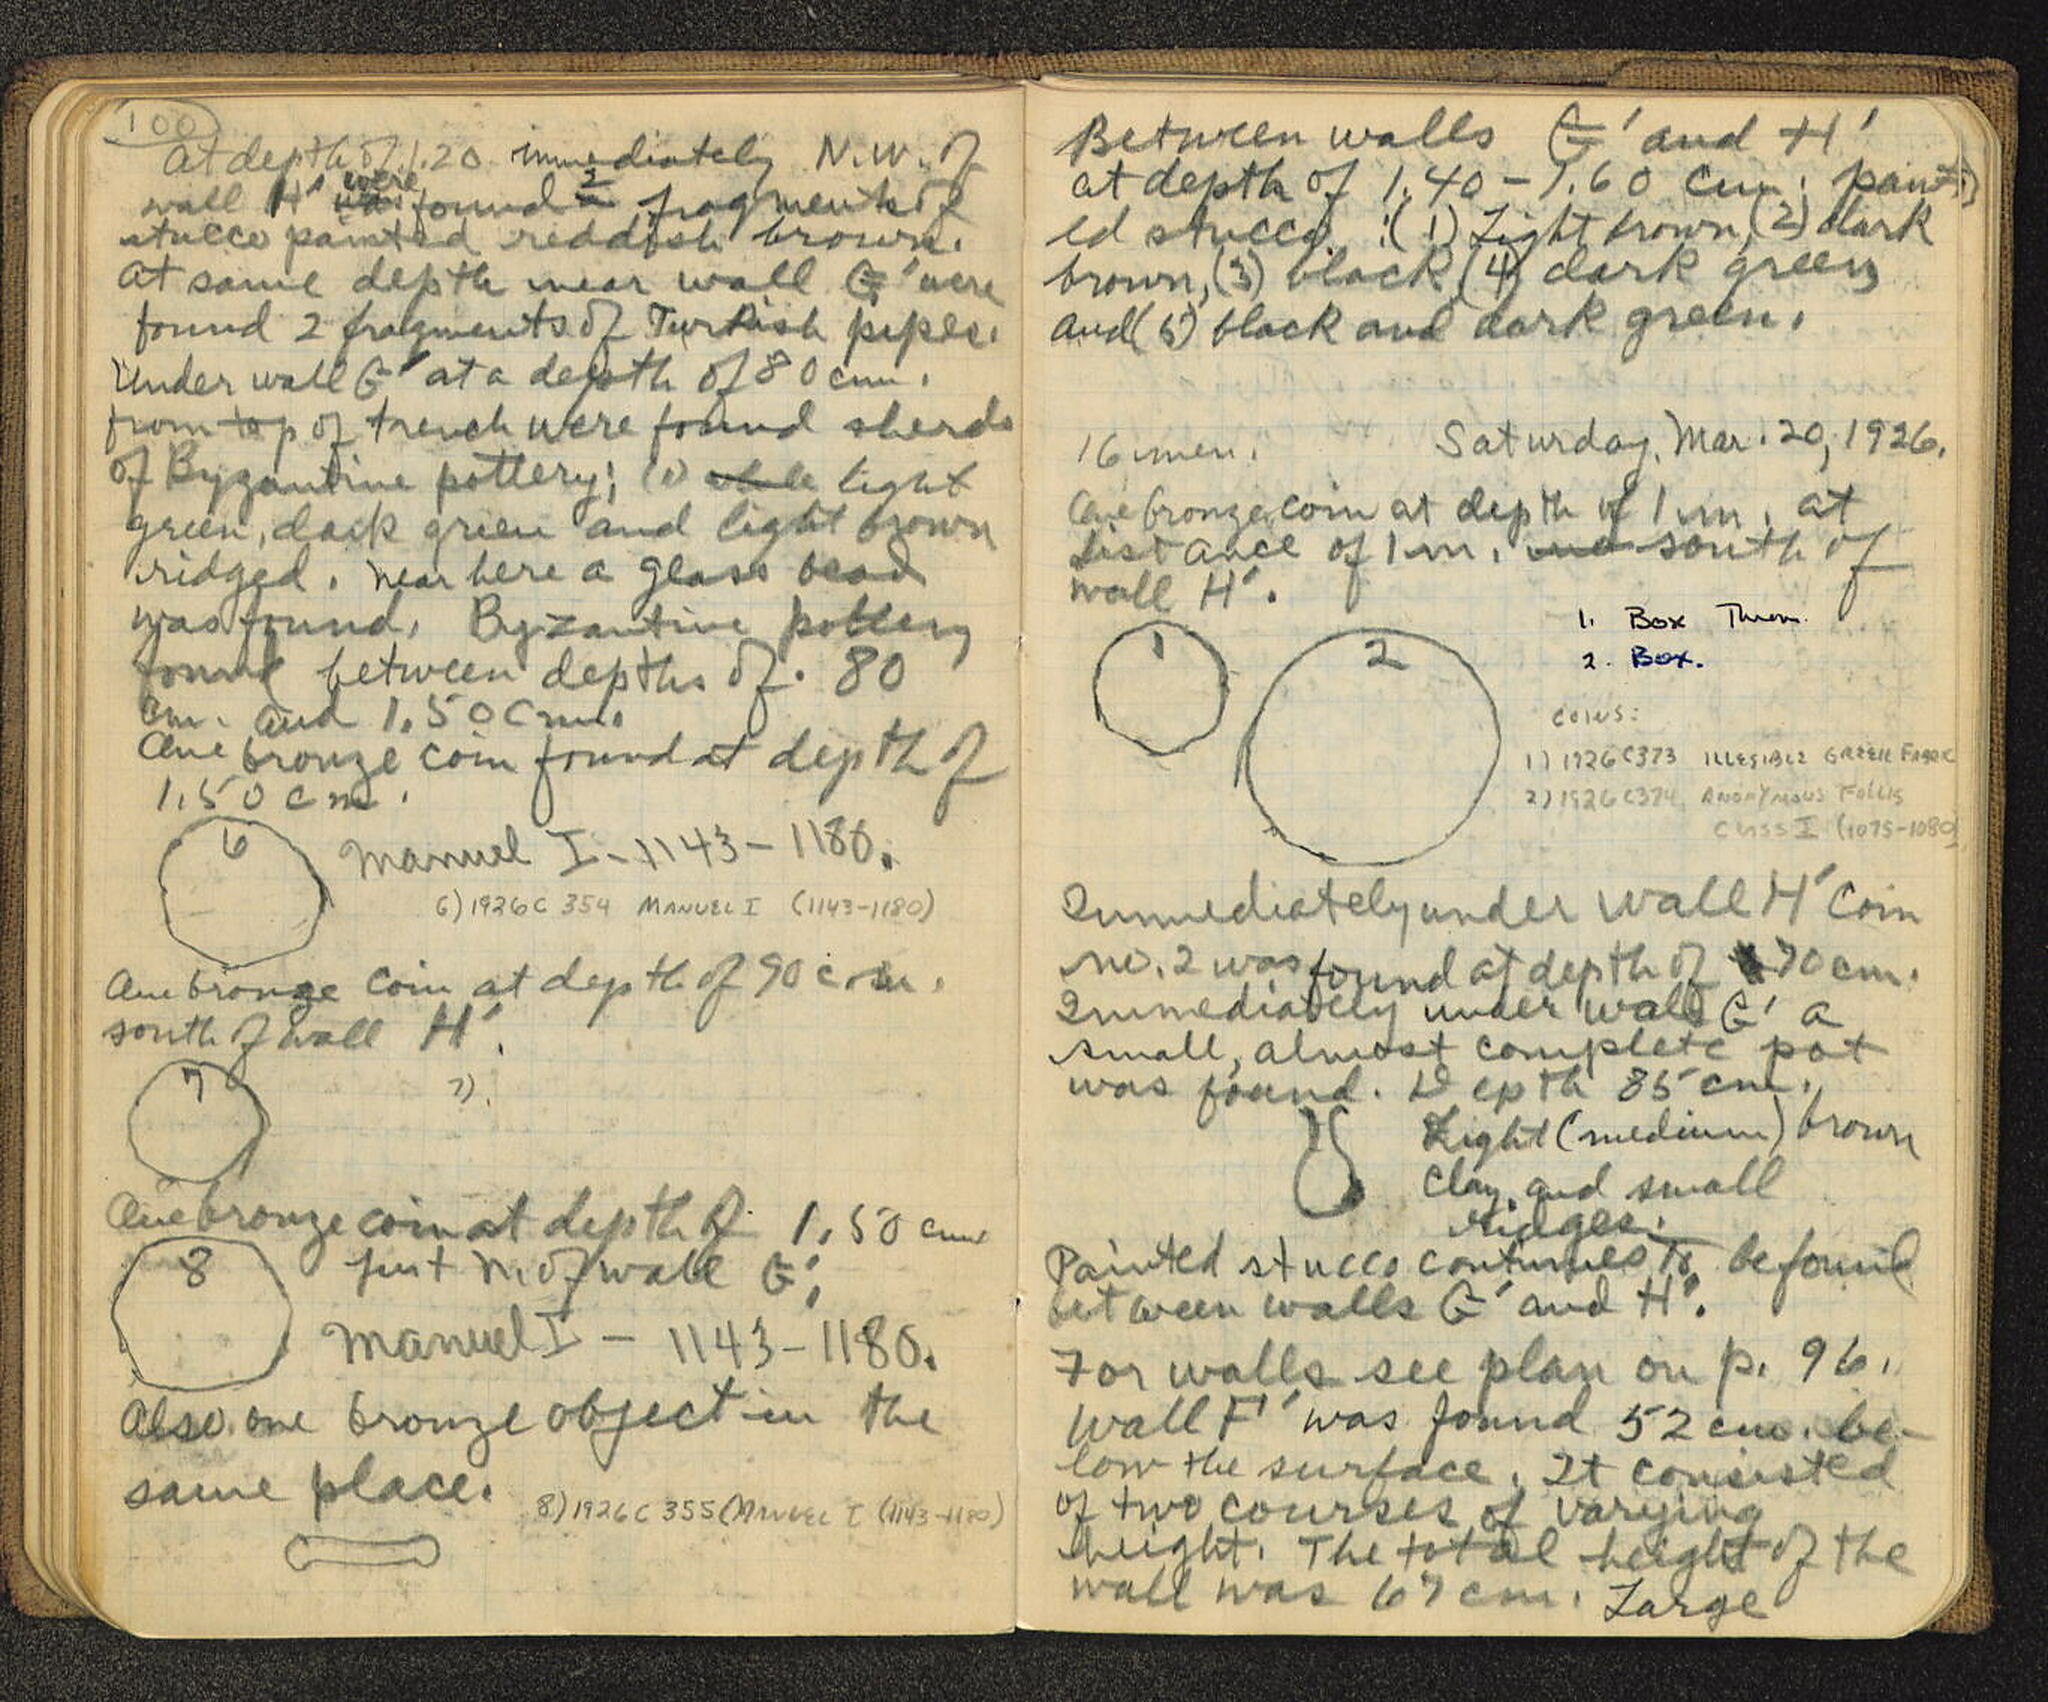 100
At depth of 1.20 immediately N.W. of
wall H' were found 2 fragments of
stucco painted reddish brown.
At same depth near wall G' were
found 2 fragments of Turkish pipes.
Under wall G' at a depth of 80 cm.
from top of trench were found sherds
of Byzantine pottery; (1) light
green, dark green and light brown
ridged. Near here a glass bead
was found. Byzantine pottery
found between depths of .80
cm. and 1.50 cm.
One bronze coin found at depth of
1.50 cm.
6
Manuel I - 1143 - 1180.
6) 1926 C 354 MANUEL I (1143-1180)
One bronze coin at depth of 90 cm.
south of wall H'.
7
7).
One bronze coin at depth of 1.50 cm
8
just N. of wall G';
Manuel I - 1143 - 1180.
Also one bronze object in the
same place.
8) 1926 C 355 (MANUEL I (1143-1180)
Between walls G' and H'
at depth of 1.40 - 1.60 cm; paint-
ed stucco : (1) Light brown, (2) dark
brown, (3) black, (4) dark green
and (5) black and dark green.
16 men. Saturday, Mar. 20, 1926.
One bronze coin at depth of 1 m. at
distance of 1 m. south of
wall H'.
1. Box Thom.
2. Box.
1
2
COINS:
1) 1926 C373 ILLEGIBLE GREEK FABRIC
2) 1926 C374 ANONYMOUS FOLLIS
CLASS I (1075-1080)
Immediately under Wall H' Coin
no. 2 was found at depth of 70 cm.
Immediately under wall G' a
small, almost complete pot
was found. Depth 85 cm.
Light (medium) brown
clay, and small
ridges.
Painted stucco continues to be found
between walls G' and H'.
For walls see plan on p. 96.
Wall F' was found 52 cm. be-
low the surface. It consisted
of two courses of varying
height. The total height of the
wall was 67 cm. Large